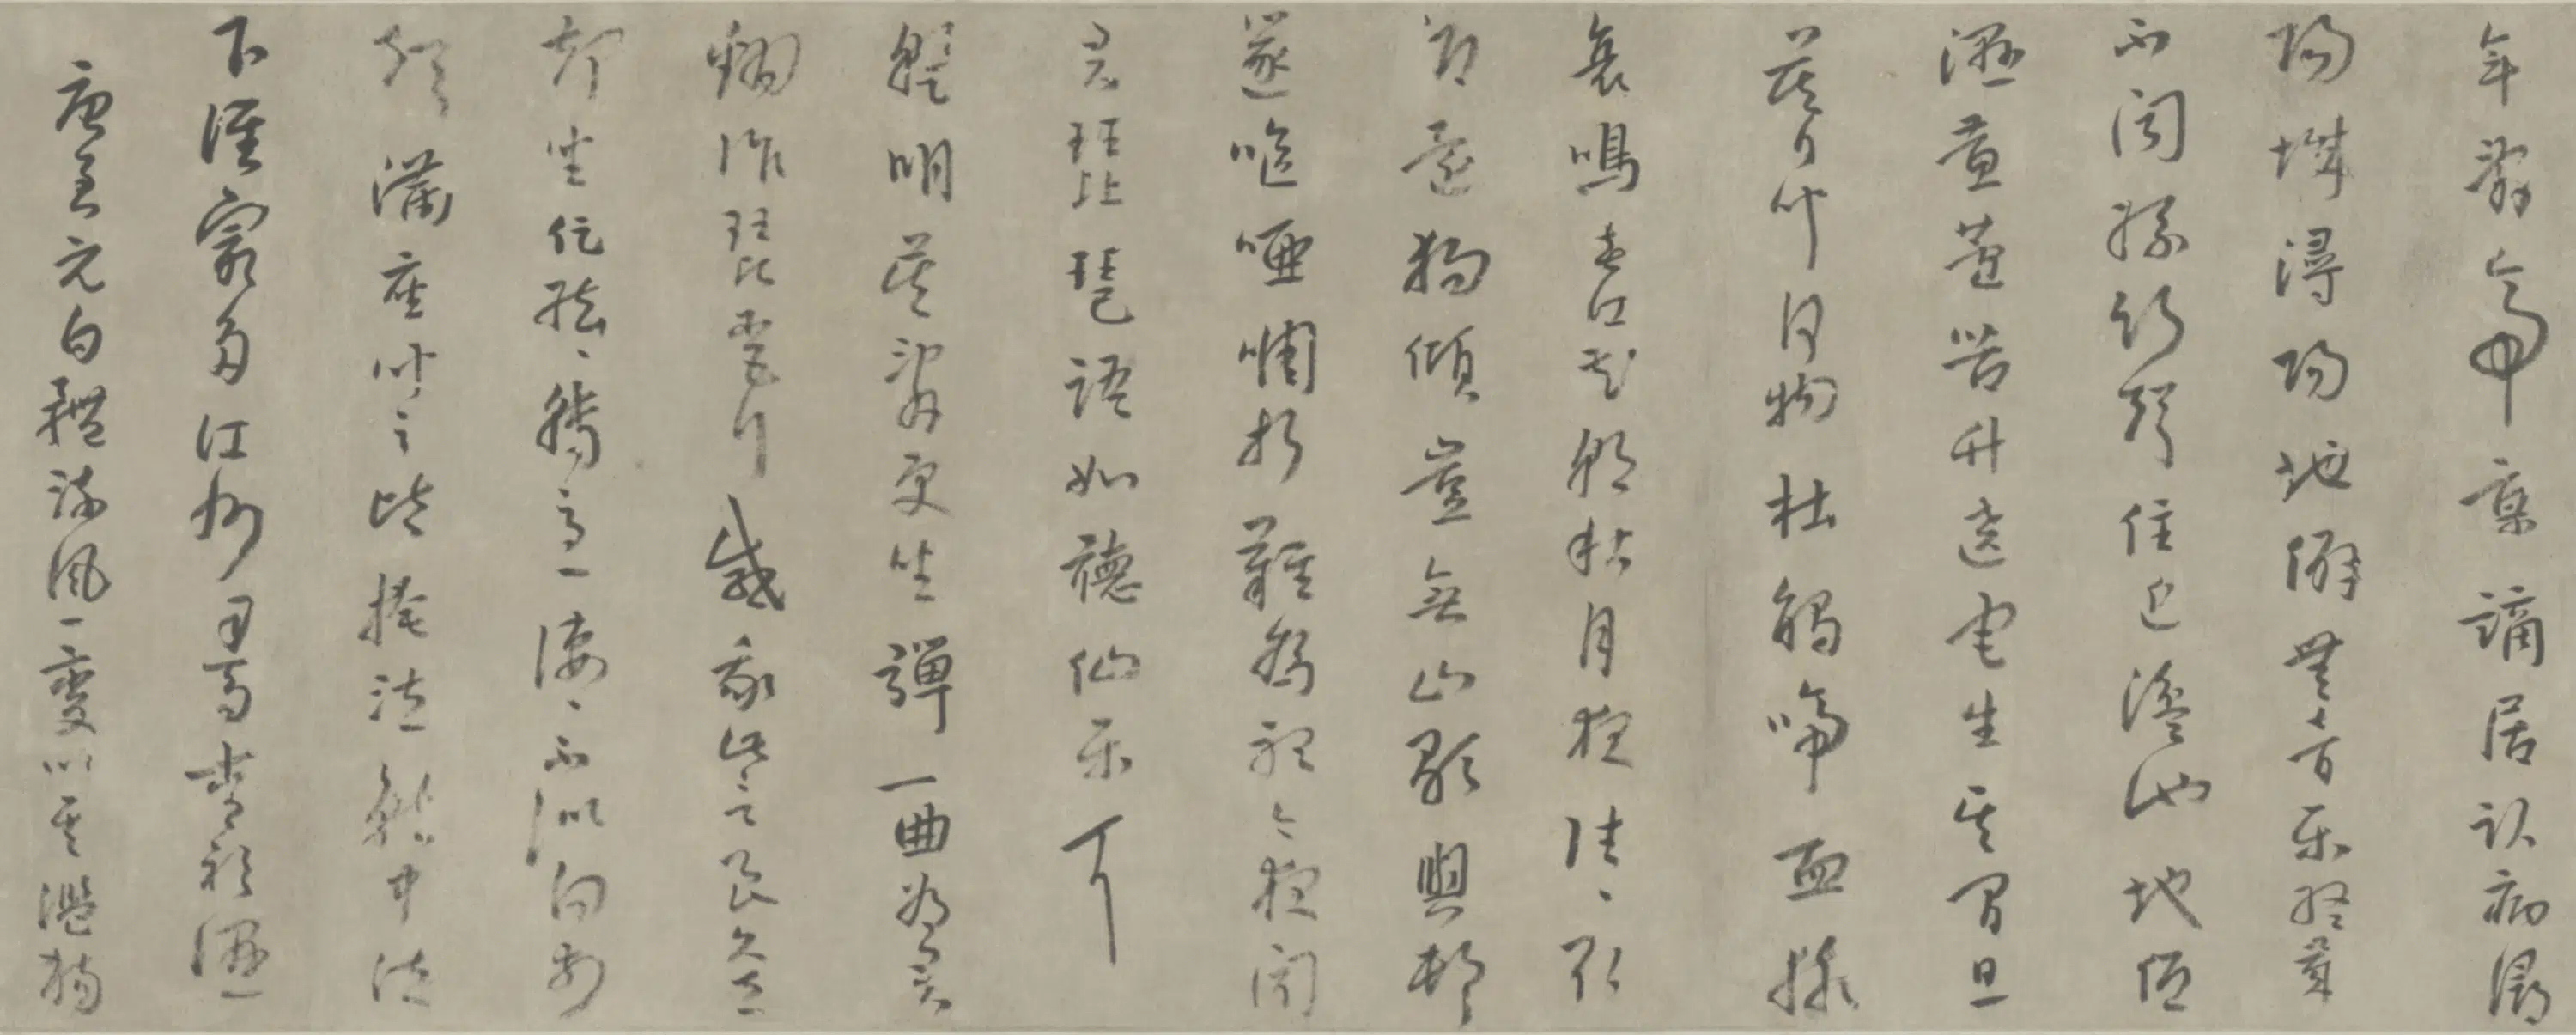 年辭帝京謫居臥病潯
陽城潯陽地僻無音樂終歲
不聞絲竹聲住近湓池地低
濕黃蘆苦竹遶宅生其間旦
暮聞何物杜鵑啼血猿
哀鳴春江花朝秋月夜往往取
酒還獨傾豈無山歌與村
篴嘔啞啁哳難為聽今夜聞
君琵琶語如聽仙樂耳
暫明莫辭更坐彈一曲為君
翻作琵琶行感我此言良久立
却坐促絃絃轉急淒淒不似向前
聲滿座聞之皆掩泣就中泣
下誰最多江州司馬青衫濕
唐至元白體風一變以其濫